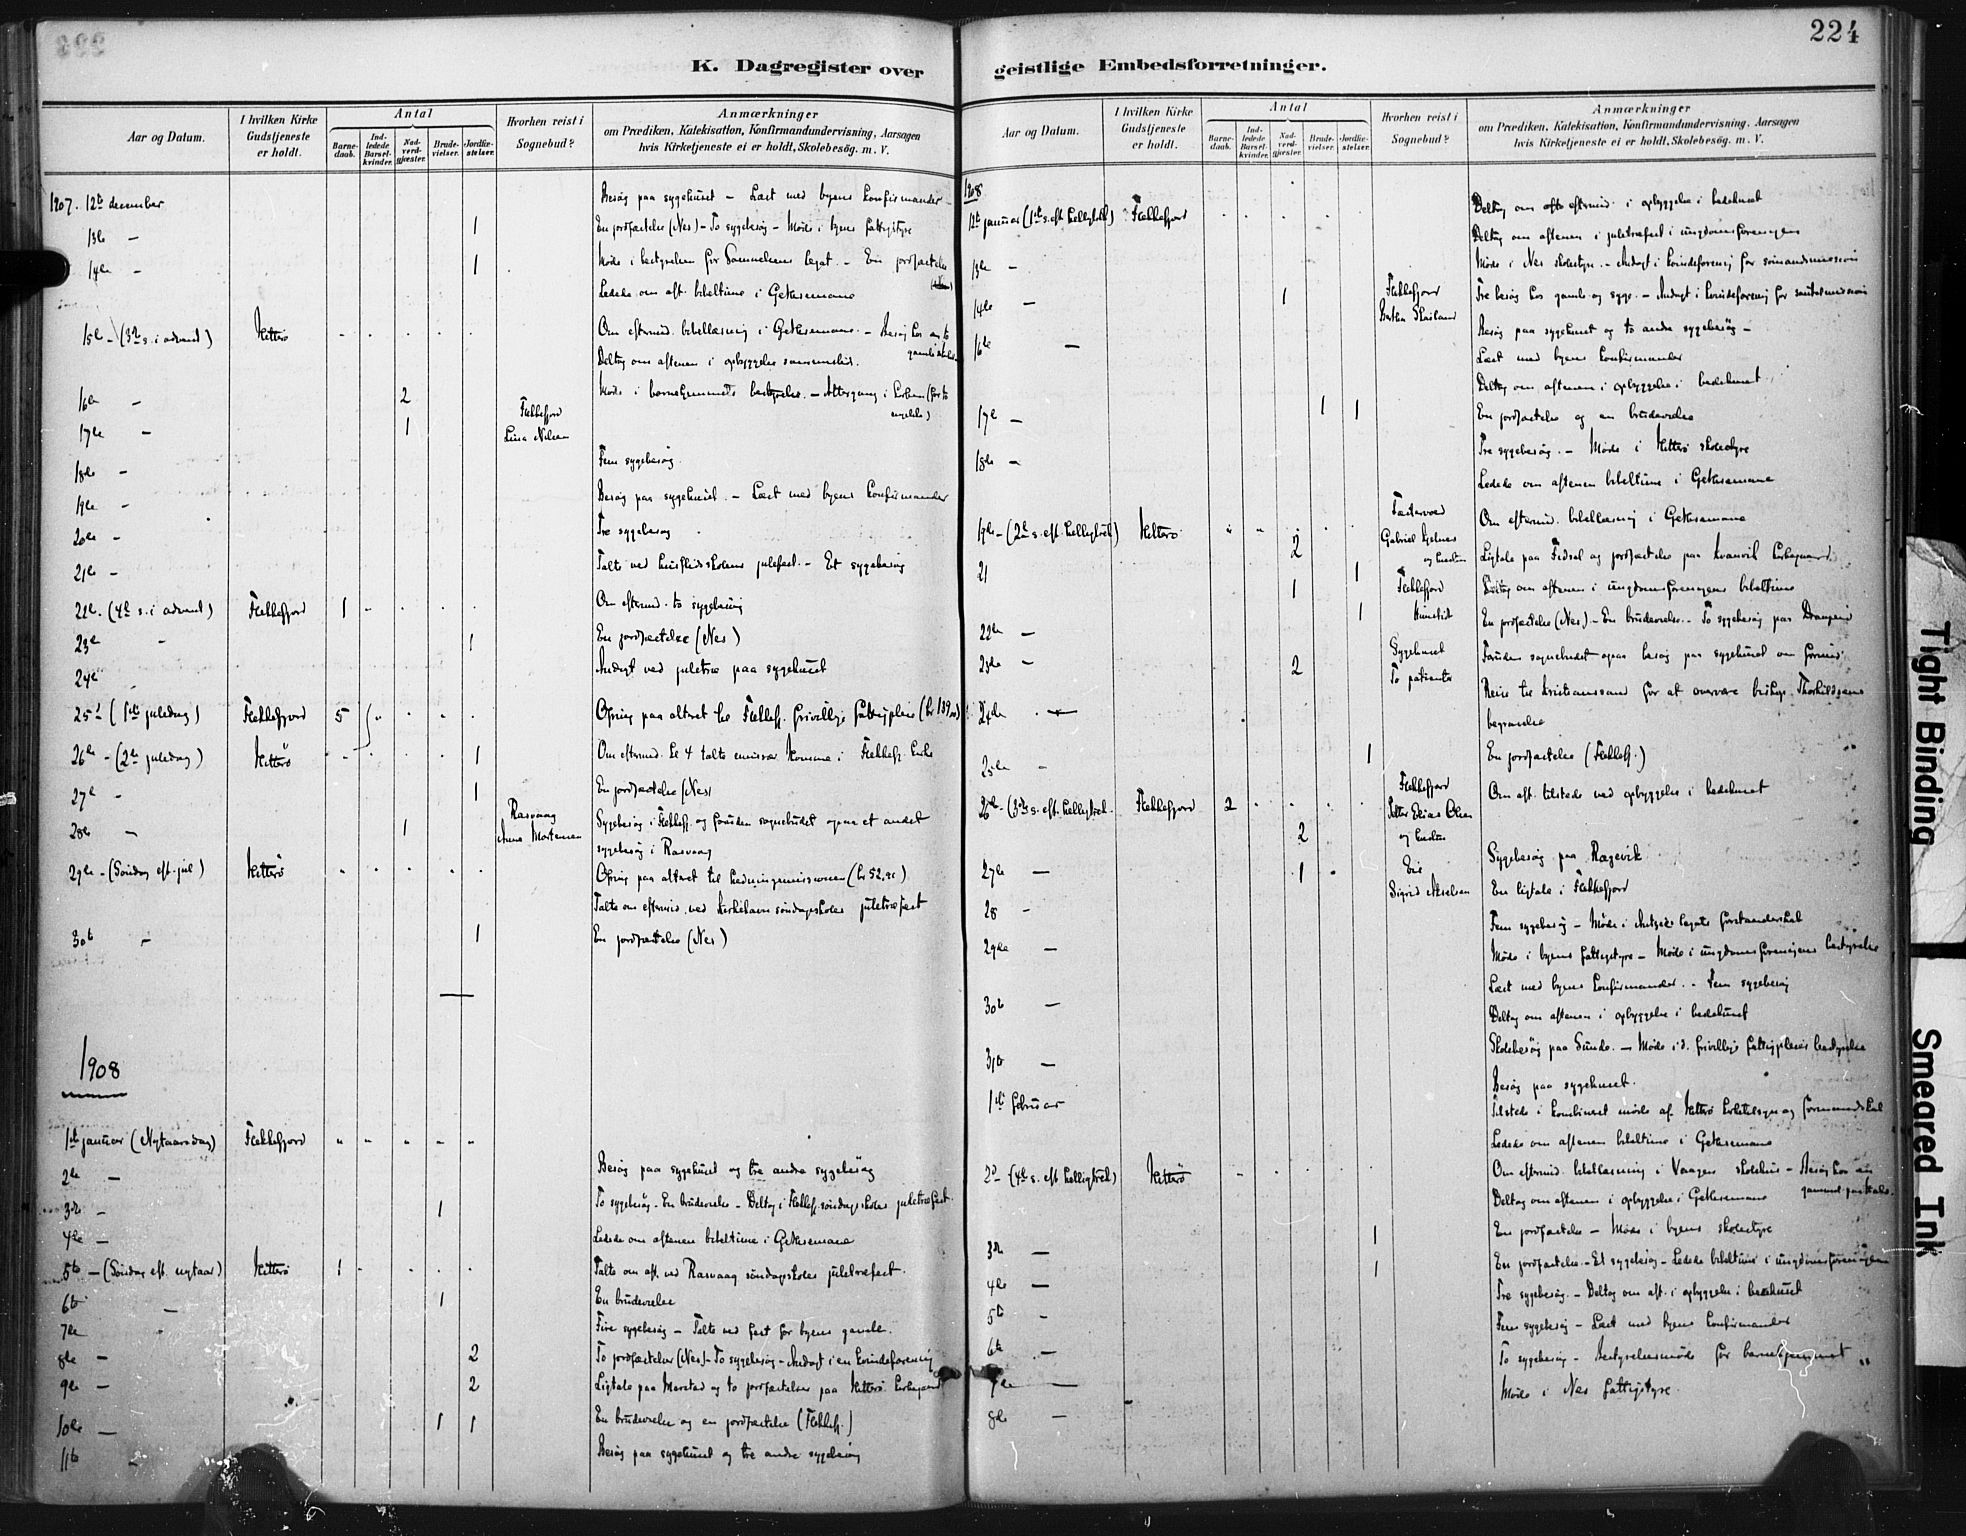 224
K. Dagregister over
Aar og Datum.
I hvilken Kirke Gudstjeneste er holdt.
Antal
Barnedaab.
Indledede Barselkvinder.
Nadverdgjester.
Brudevielser.
Jordfæstelser.
Hvorhen reist i Sognebud?
Anmærkninger
om Prædiken, Katekisation, Konfirmandundervisning, Aarsagen
hvis Kirketjeneste ei er holdt, Skolebesög. m. V.
1907. 12te december Besøg paa sygehuset – Læst med byens konfirmander
13de – 1 En jordfæstelse (Nes) – To sygebesøg – Møde i byens fattigstyre
14de – 1 Møde i bestyrelsen for legat. – En jordfæstelse
Ledede om aft. bibeltime i Gethsemane
15de – (3die s. i advent) Hitterö Om eftermid. bibellæsning i Gethsemane. – Besøg hos
Deltog om aftenen i opbyggelse sammesteds.
16de – 2 Møde i barnehjemmets bestyrelse. – Altergang i kirken (for to
17de – 1 Flekkefjord
Lina Nilsen
18de – Fem sygebesøg.
19de – Besøg paa sygehuset. – Læst med byens konfirmander
20de – Tre sygebesøg
21de – Talte ved husflidsskolens julefest. – Et sygebesøg
22de – (4de s. i advent) Flekkefjord 1 Om eftermid. to sygebesøg
23de – 1 En jordfæstelse (Nes)
24de Andagt ved juletræ paa sygehuset
25de (1ste juledag) Flekkefjord 5 Ofring paa altret til Flekkefj. frivillige fattigpleie (kr 139,00)
26de – (2den juledag) Hitterö 1 Om eftermid. kl 4 talte emissær i Flekkefj. kirke
27de – 1 En jordfæstelse (Nes)
28de – 1 Rasvaag
Anna Mortensen Sygebesøg i Flekkefj. og foruden sognebudet ogsaa et andet
sygebesøg i Rasvaag
29de – (Søndag eft. jul) Hitterö Ofring paa altret til hedningemissionen (kr 52,91)
Talte om eftermid. ved Kirkehavn søndagsskoles juletræfest
30te – 1 En jordfæstelse (Nes)
1908
1ste januar (Nytaarsdag) Flekkefjord
2den – Besøg paa sygehuset og tre andre sygebesøg
3die – 1 To sygebesøg – En brudevielse – Deltog i Flekkefj. søndagsskoles juletræfest.
4de – Ledede om aftenen bibeltime i Gethsemane
5te – (Søndag eft. nytaar) Hitterö 1 Talte om aft. ved Rasvaag søndagsskoles juletræfest.
6te – 1 En brudevielse
7de – Fire sygebesøg – Talte ved fest for byens gamle.
8de – 2 To jordfæstelser (Nes) – To sygebesøg – Andagt i en kvindeforening
9de – 2 Ligtale paa og to jordfæstelser paa Hitterö kirkegaard
10de – 1 1 En brudevielse og en jordfæstelse (Flekkefj.)
11te – Besøg paa sygehuset og tre andre sygebesøg
geistlige Embedsforretninger.
Aar og Datum.
I hvilken Kirke Gudstjeneste er holdt.
Antal
Barnedaab.
Indledede Barselkvinder.
Nadverdgjester.
Brudevielser.
Jordfæstelser.
Hvorhen reist i Sognebud?
Anmærkninger
om Prædiken, Katekisation, Konfirmandundervisning, Aarsagen
hvis Kirketjeneste ei er holdt, Skolebesög. m. V.
1908
12te januar (1ste s. eft. helligtrek.) Flekkefjord Deltog om eftermid. i opbyggelse i bedehuset
Deltog om aftenen i juletræfest i ungdomsforeningen
13de – Møde i Nes skolestyre. – Andagt i kvindeforening for sømandsmission
14de – 1 Flekkefjord
Tre besøg hos gamle og syge. – Andagt i kvindeforening for santalmission
16de – Besøg paa sygehuset og to andre sygebesøg –
Læst med byens konfirmander
Deltog om aftenen i opbyggelse i bedehuset
17de – 1 1 En jordfæstelse og en brudevielse
18de – Tre sygebesøg. – Møde i Hitterö skolestyre
Ledede om aftenen bibeltime i Gethsemane
19de – (2den s. eft. helligtrek.) Hitterö 2 Gabriel Om eftermid. bibellæsning i Gethsemane
21 1 Ligtale paa Fedsel og jordfæstelse paa kirkegaard
1 Flekkefjord om aftenen i ungdomsforeningens bibeltime
22de – 1 En jordfæstelse (Nes) – En brudevielse. – To sygebesøg paa
23de – 2 Sygehuset
To patienter Foruden sognebudet ogsaa besøg paa sygehuset om formid.
24de – Reise til Kristianssand for at overvære biskop Thorkildsens
begravelse
25de – 1 En jordfæstelse (Flekkefj.)
26de – (3die s. eft. helligtrek. Flekkefjord 2 2 Flekkefjord
Petter Elias Olsen
og hustru Om aft. tilstede ved opbyggelse i bedehuset
27de – 1 Eie
Sigrid Axelsen Sygebesøg paa Ragevik
28 – En ligtale i Flekkefjord
Fem sygebesøg – Møde i legats forstanderskab
29de – Møde i byens fattigstyre – Møde i ungdomsforeningens bestyrelse
30te – Læst med byens konfirmander. – Fem sygebesøg
Deltog om aftenen i opbyggelse i bedehuset
31te – Skolebesøg paa Sunde. – Møde i d. frivillige fattigpleies bestyrelse
Besøg paa sygehuset.
1ste februar Tilstede i kombineret møde af Hitterö kirketilsyn og formandskab
Ledede om aftenen bibeltime i Gethsemane
2den – (4de s. eft. helligtrek.) Hitterö Om eftermid. bibellæsning i Vaagen skolehus – Besøg hos en
Deltog om aftenen i opbyggelse i Gethsemane
3die – 1 En jordfæstelse – Møde i byens skolestyre
4de – 1 En jordfæstelse. – Et sygebesøg – Ledede bibeltime i ungdomsforeningen
5te – Tre sygebesøg. – Deltog om aft. i opbyggelse i bedehuset
6te – Fem sygebesøg – Læst med byens konfirmander
7de – To sygebesøg – Bestyrelsesmøde for barnehjemmet
8de – Møde i Nes fattigstyre.
Tight Binding
Smeared Ink